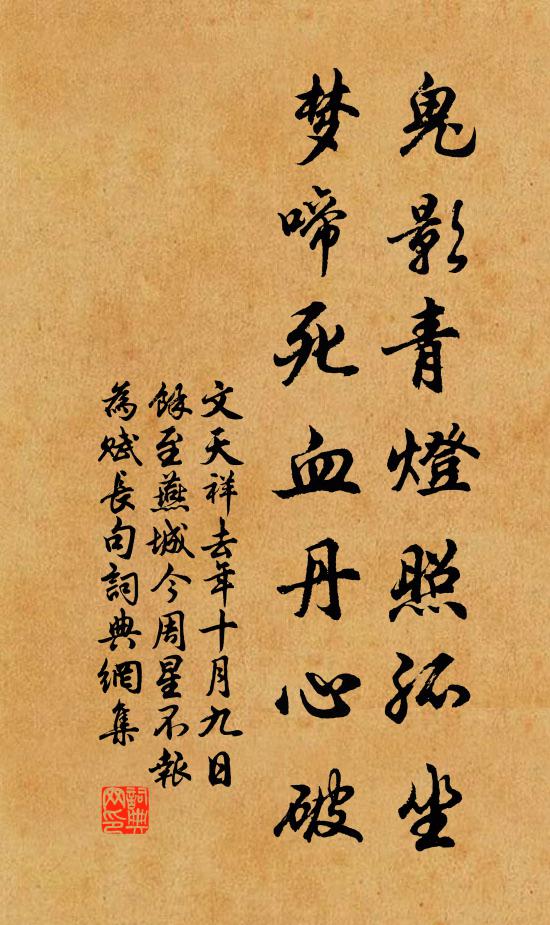 鬼影青燈照孤坐
梦啼死血丹心破
文天祥去年十月九日
餘至燕城今周星不報
為赋長句詞典網集
詞典
网印